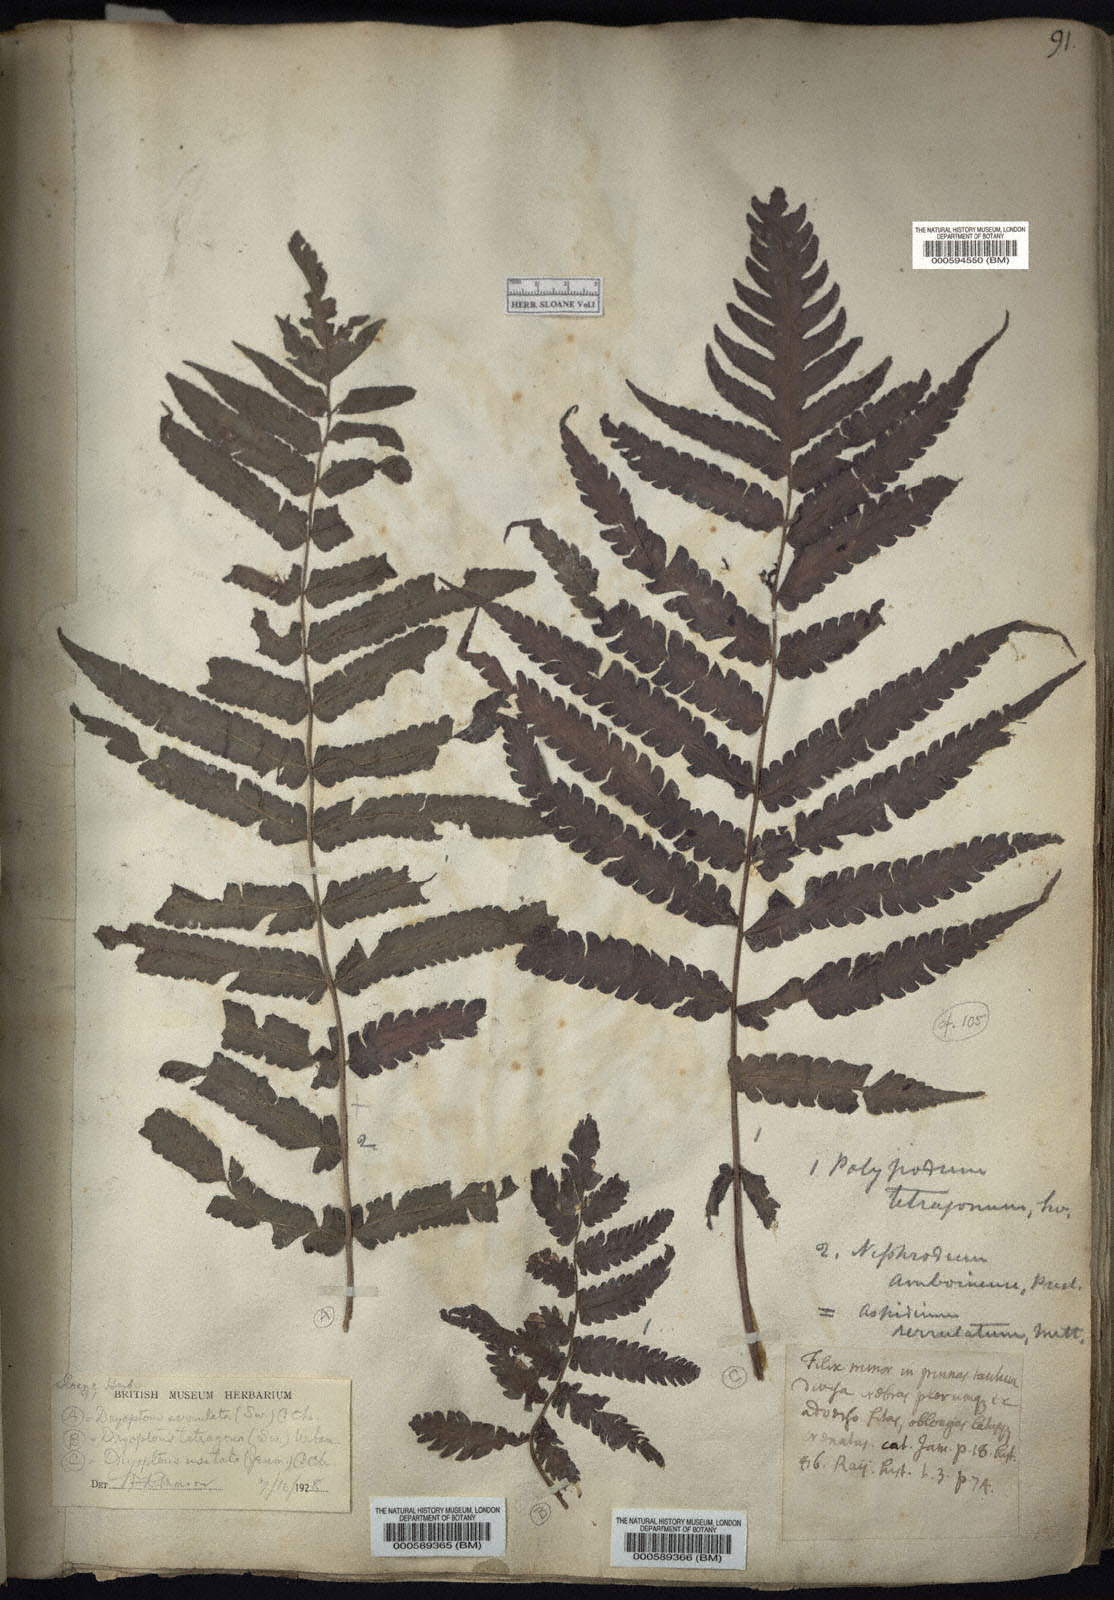 91.
THE NATURAL HISTORY MUSEUM, LONDON
DEPARTMENT OF BOTANY
000594550 (BM)
HERB. SLOANE Vol.1
cf. 105
2
1
1
1 Polypodium
tetragonum, Sw.
2. Nephrodium
amboinense, Presl.
= Aspidium
serrulatum, Mett.
A
B
C
Filix minor in pinnas tantum
divisa crebras plerumq; ex
adverso sitas, oblongas latasq;
crenatas. cat. Jam. p. 18. hist.
Raij. hist. t. 3. p 74.
BRITISH MUSEUM HERBARIUM
A = Dryopteris (Sw.) C. Chr.
B = Dryopteris tetragona (Sw.) Urban
C = Dryopteris (Jenm.) C. Chr.
DET 7/12/1928
THE NATURAL HISTORY MUSEUM, LONDON
DEPARTMENT OF BOTANY
000589365 (BM)
THE NATURAL HISTORY MUSEUM, LONDON
DEPARTMENT OF BOTANY
000589366 (BM)